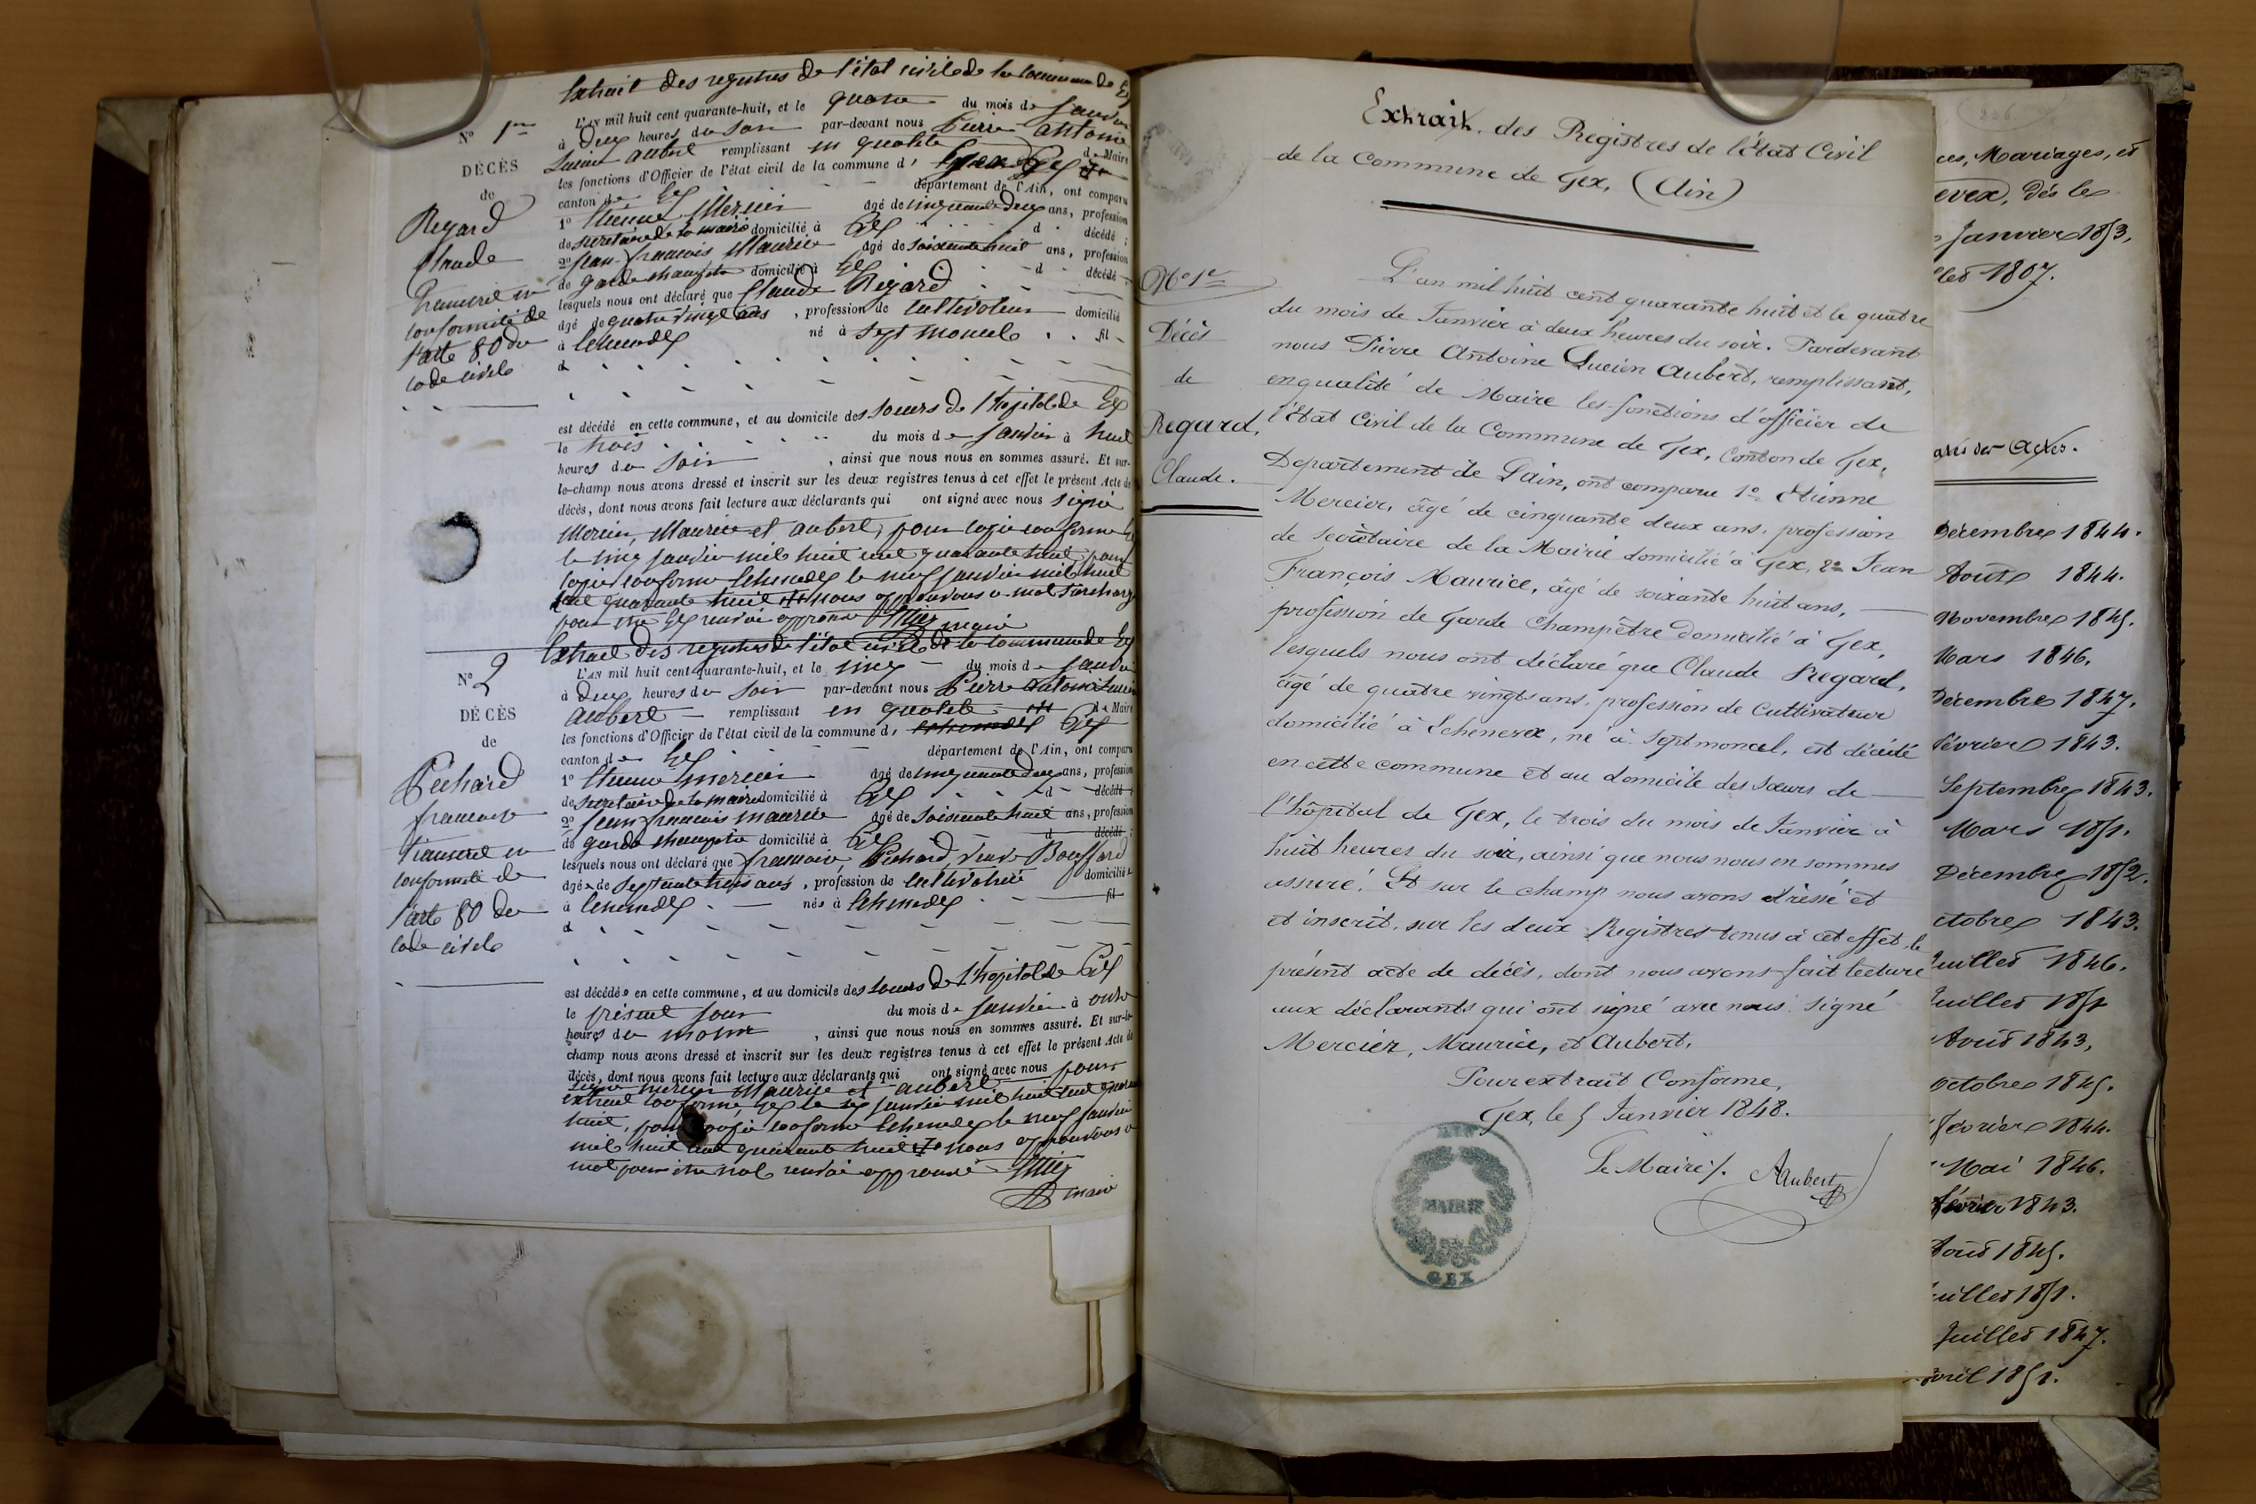 Extrait des registres de l'état civil de la commune de
L'AN mil huit cent quarante-huit, et le quatre du mois de janvier
N° 1er
à deux heures du soir par-devant nous Pierre Antoine
Lucien Aubert remplissant en qualité de Maire
DÉCÈS
les fonctions d'Officier de l'état civil de la commune d' Gex
de
canton de Gex département de l'Ain, ont comparu
Regard
1° Etienne Mercier âgé de cinquante deux ans, profession
de secrétaire de la mairie domicilié à Gex d décédé;
Claude
2° Jean françois Maurice âgé de soixante huit ans, profession
de garde champêtre domicilié à Gex d décédé;
Transcrit en
lesquels nous ont déclaré que Claude Regard
conformité de
âgé de quatre vingt ans, profession de cultivateur domicilié
l'arte 80 du
à Echenevex né à Sept moncel fil
code civile
d
est décédé en cette commune, et au domicile des soeurs de l'hopital de Gex
le trois du mois de janvier à huit
heures du soir, ainsi que nous nous en sommes assuré. Et sur-
le-champ nous avons dressé et inscrit sur les deux registres tenus à cet effet le présent Acte de
décès, dont nous avons fait lecture aux déclarants qui ont signé avec nous signé
Mercier, Maurice et Aubert, pour copie conforme
le cinq janvier mil huit cent quarante huit, pour
copie conforme Echenevex le neuf janvier mil huit
cent quarante huit nous approuvons
maire
Extrait des registres de l'état civile de la commune de Gex
N° 2
L'AN mil huit cent quarante-huit, et le cinq du mois de janvier
à deux heures du soir par-devant nous Pierre Antoine Lucien
DÉCÈS
Aubert remplissant en qualité de Maire
de
les fonctions d'Officier de l'état civil de la commune d' Echenevex Gex
canton de Gex département de l'Ain, ont comparu
Pechard
1° Etienne Mercier âgé de cinquante deux ans, profession
de secrétaire de la mairie domicilié à Gex d décédé;
françoise
2° Jean françois Maurice âgé de soixante huit ans, profession
de garde champêtre domicilié à Gex d décédé;
Transcrit en
lesquels nous ont déclaré que françoise Pechard, veuve Bouffard
conformité de
âgée de septante trois ans, profession de cultivatrice domiciliée
l'arte 80 du
à Echenevex née à Echenevex fil
code civile
d
est décédée en cette commune, et au domicile des soeurs de l'hopital de Gex
le présent jour du mois de janvier à onze
heures du matin, ainsi que nous nous en sommes assuré. Et sur-le-
champ nous avons dressé et inscrit sur les deux registres tenus à cet effet le présent Acte de
décès, dont nous avons fait lecture aux déclarants qui ont signé avec nous pour
Mercier Maurice et Aubert
extrait conforme, Gex le six janvier mil huit cent quarante
huit, pour copie conforme Echenevex le neuf janvier
mil huit cent quarante huit nous approuvons
mot renvoi approuvé
maire
Extrait des Registres de l'État Civil
de la Commune de Gex, (Ain)
N° 1er
Décès
de
Regard,
Claude.
L'an mil huit cent quarante huit et le quatre
du mois de Janvier à deux heures du soir. Pardevant
nous Pierre Antoine Lucien Aubert, remplissant,
en qualité de Maire les fonctions d'officier de
l'État Civil de la Commune de Gex, Canton de Gex,
Departement de L'ain, ont comparu 1° Etienne
Mercier, âgé de cinquante deux ans, profession
de Secrétaire de la Mairie domicilié à Gex, 2° Jean
François Maurice, âgé de soixante huit ans,
profession de Garde Champêtre domicilié à Gex,
lesquels nous ont déclaré que Claude Regard,
âgé de quatre vingts ans, profession de Cultivateur
domicilié à Echenevex, né à Septmoncel, est décédé
en cette commune et au domicile des Sœurs de
l'hôpital de Gex, le trois du mois de Janvier à
huit heures du soir, ainsi que nous nous en sommes
assuré. Et sur le champ nous avons dressé et
et inscrit, sur les deux Registres tenus à cet effet, le
présent acte de décès, dont nous avons fait lecture
aux déclarants qui ont signé avec nous. Signé
Mercier, Maurice, et Aubert.
Pour extrait Conforme,
Gex, le 5 Janvier 1848.
Le Maire/. AAubert
MAIRIE
GEX
ces, Mariages, et
evex, Dès le
Janvier 1853,
llet 1807.
des Actes.
Décembre 1844.
Août 1844.
Novembre 1845.
Mars 1846.
Décembre 1847.
février 1843.
Septembre 1843.
Mars 1851.
Décembre 1852.
ctobre 1843.
Juillet 1846.
Juillet 1851
Août 1843,
octobre 1845.
février 1844.
Mai 1846.
février 1843.
Août 1845.
uillet 1851.
Juillet 1847.
avril 1851.